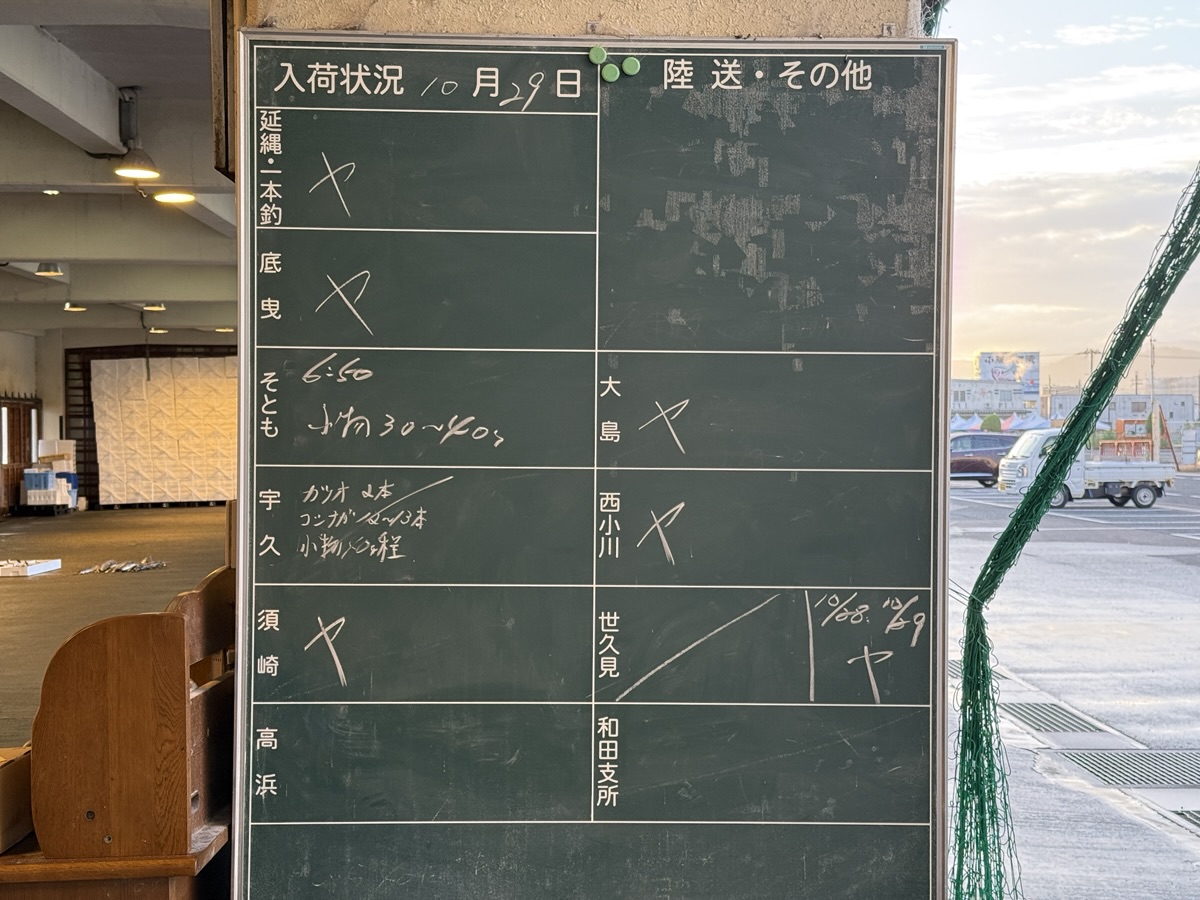 入荷状況 10月29日
陸送・その他
延縄・一本釣
ヤ
底曳
ヤ
そとも
6:50
小物 30〜40
大島
ヤ
宇久
カツオ 2本
コシナガ 12〜13本
小物 程
西小川
ヤ
須崎
ヤ
世久見
10/28. 10/29
ヤ
高浜
和田支所